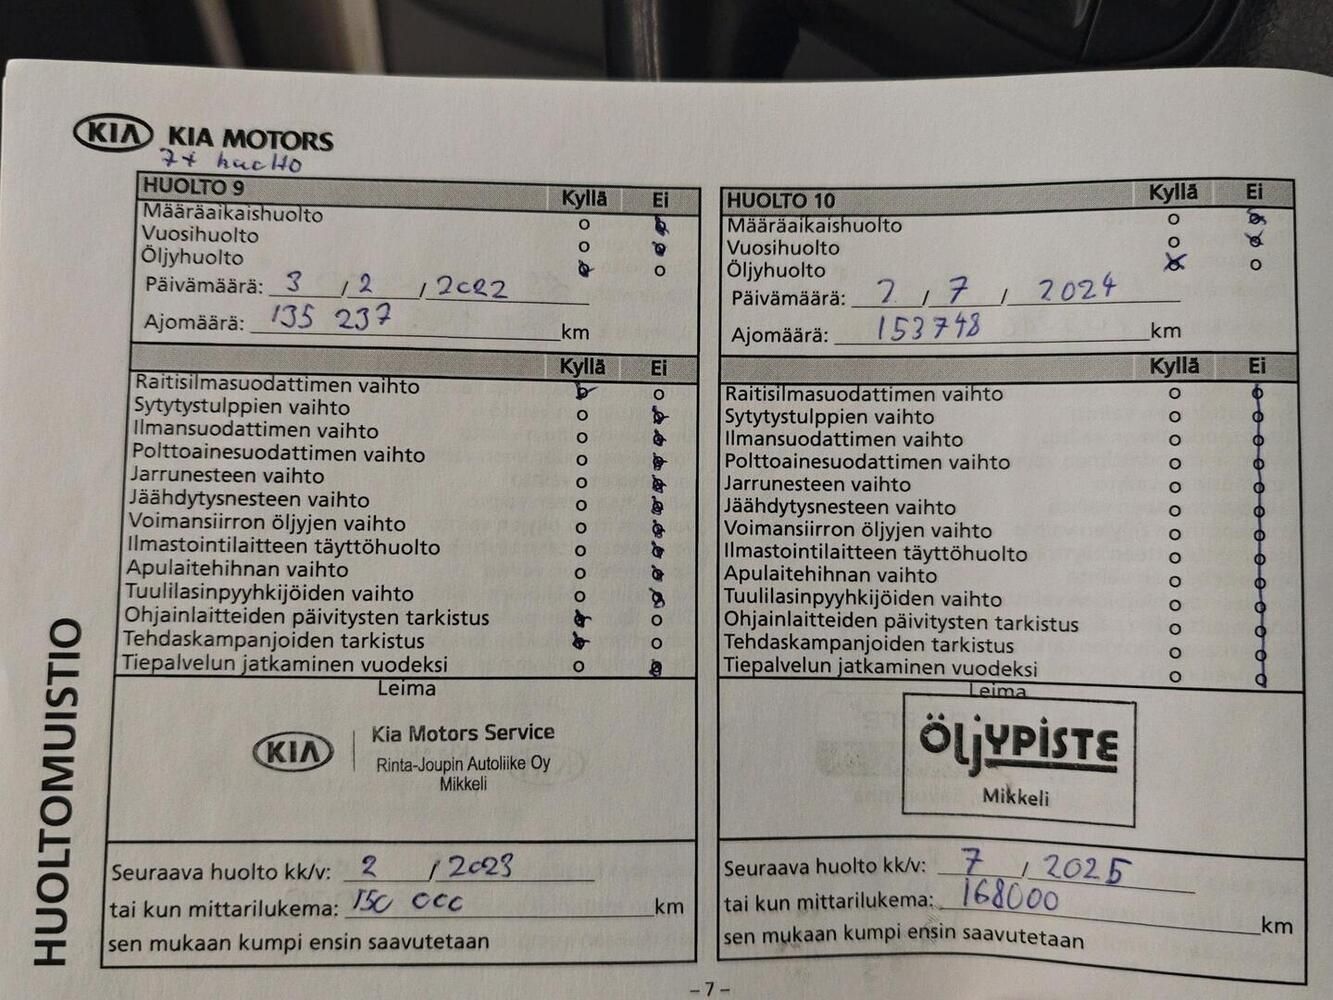 KIA KIA MOTORS
7x huolto
HUOLTO 9 Kyllä Ei
Määräaikaishuolto
Vuosihuolto
Öljyhuolto
Päivämäärä: 3 / 2 / 2022
Ajomäärä: 135 237 km
Kyllä Ei
Raitisilmasuodattimen vaihto
Sytytystulppien vaihto
Ilmansuodattimen vaihto
Polttoainesuodattimen vaihto
Jarrunesteen vaihto
Jäähdytysnesteen vaihto
Voimansiirron öljyjen vaihto
Ilmastointilaitteen täyttöhuolto
Apulaitehihnan vaihto
Tuulilasinpyyhkijöiden vaihto
Ohjainlaitteiden päivitysten tarkistus
Tehdaskampanjoiden tarkistus
Tiepalvelun jatkaminen vuodeksi
Leima
KIA Kia Motors Service
Rinta-Joupin Autoliike Oy
Mikkeli
Seuraava huolto kk/v: 2 / 2023
tai kun mittarilukema: 150 000 km
sen mukaan kumpi ensin saavutetaan
HUOLTO 10 Kyllä Ei
Määräaikaishuolto
Vuosihuolto
Öljyhuolto
Päivämäärä: 2 / 7 / 2024
Ajomäärä: 153748 km
Kyllä Ei
Raitisilmasuodattimen vaihto
Sytytystulppien vaihto
Ilmansuodattimen vaihto
Polttoainesuodattimen vaihto
Jarrunesteen vaihto
Jäähdytysnesteen vaihto
Voimansiirron öljyjen vaihto
Ilmastointilaitteen täyttöhuolto
Apulaitehihnan vaihto
Tuulilasinpyyhkijöiden vaihto
Ohjainlaitteiden päivitysten tarkistus
Tehdaskampanjoiden tarkistus
Tiepalvelun jatkaminen vuodeksi
Leima
ÖLJYPISTE
Mikkeli
Seuraava huolto kk/v: 7 / 2025
tai kun mittarilukema: 168000 km
sen mukaan kumpi ensin saavutetaan
HUOLTOMUISTIO
– 7 –